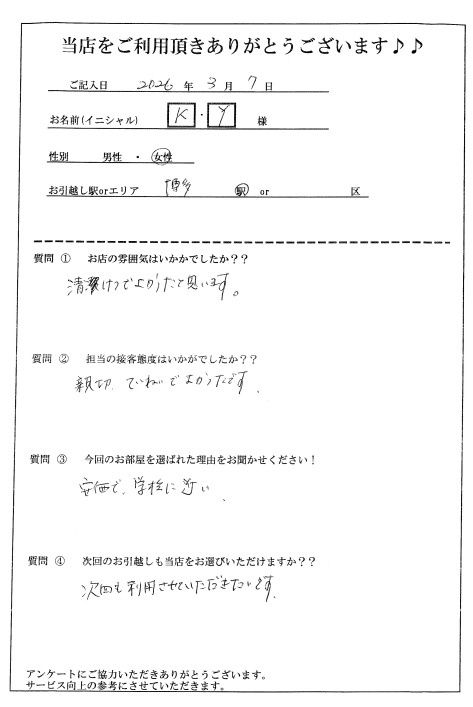 当店をご利用頂きありがとうございます♪♪
ご記入日 2026 年 3 月 7 日
お名前(イニシャル) K ・ Y 様
性別 男性 ・ 女性
お引越し駅orエリア 博多 駅 or 区
質問 ① お店の雰囲気はいかかでしたか？？
清潔けつでよかったと思います。
質問 ② 担当の接客態度はいかがでしたか？？
親切、ていねいでよかったです。
質問 ③ 今回のお部屋を選ばれた理由をお聞かせください！
安価で、学校に近い、
質問 ④ 次回のお引越しも当店をお選びいただけますか？？
次回も利用させていただきたいです。
アンケートにご協力いただきありがとうございます。
サービス向上の参考にさせていただきます。